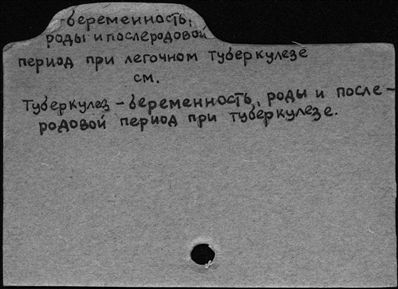 - беременность,
роды и послеродовой
период при легочном туберкулезе
см.
Туберкулез - беременность, роды и после-
родовой период при туберкулезе.